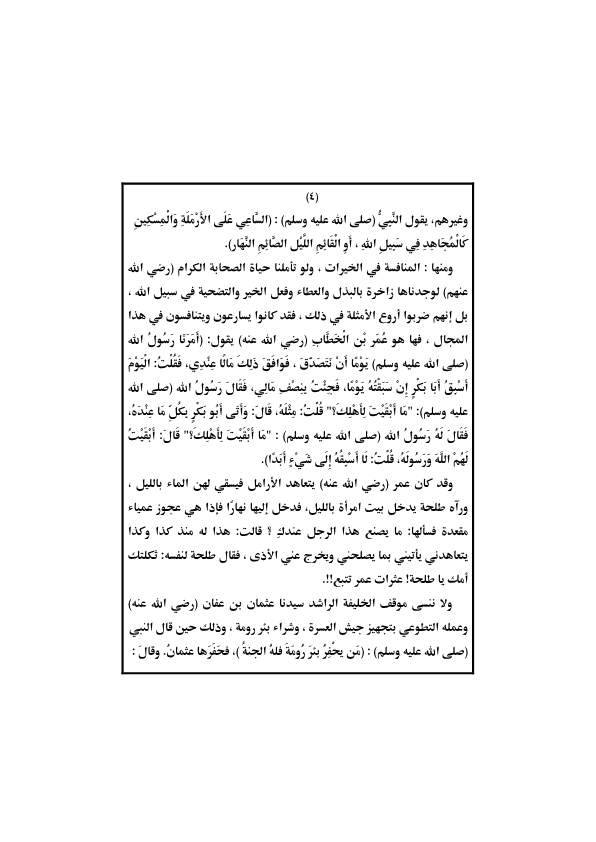 (٤)
وغيرهم، يقول النَّبِيُّ (صلى الله عليه وسلم) : (السَّاعِي عَلَى الأَرْمَلَةِ وَالْمِسْكِينِ
كَالْمُجَاهِدِ فِي سَبِيلِ اللهِ ، أَوِ الْقَائِمِ اللَّيْل الصَّائِمِ النَّهَار).
ومنها : المنافسة في الخيرات ، ولو تأملنا حياة الصحابة الكرام (رضي الله
عنهم) لوجدناها زاخرة بالبذل والعطاء وفعل الخير والتضحية في سبيل الله ،
بل إنهم ضربوا أروع الأمثلة في ذلك ، فقد كانوا يسارعون ويتنافسون في هذا
المجال ، فها هو عُمَر بْن الْخَطَّابِ (رضي الله عنه) يقول: (أَمَرَنَا رَسُولُ الله
(صلى الله عليه وسلم) يَوْمًا أَنْ نَتَصَدَّقَ ، فَوَافَقَ ذَلِكَ مَالًا عِنْدِي، فَقُلْتُ: الْيَوْمَ
أَسْبِقُ أَبَا بَكْرٍ إِنْ سَبَقْتُهُ يَوْمًا، فَجِئْتُ بِنِصْفِ مَالِي، فَقَالَ رَسُولُ الله (صلى الله
عليه وسلم): "مَا أَبْقَيْتَ لِأَهْلِكَ؟" قُلْتُ: مِثْلَهُ، قَالَ: وَأَتَى أَبُو بَكْرٍ بِكُلِّ مَا عِنْدَهُ،
فَقَالَ لَهُ رَسُولُ الله (صلى الله عليه وسلم) : "مَا أَبْقَيْتَ لِأَهْلِكَ؟" قَالَ: أَبْقَيْتُ
لَهُمْ اللَّهَ وَرَسُولَهُ، قُلْتُ: لَا أَسْبِقُهُ إِلَى شَيْءٍ أَبَدًا).
وقد كان عمر (رضي الله عنه) يتعاهد الأرامل فيسقي لهن الماء بالليل ،
ورآه طلحة يدخل بيت امرأة بالليل، فدخل إليها نهارًا فإذا هي عجوز عمياء
مقعدة فسألها: ما يصنع هذا الرجل عندكِ ؟ قالت: هذا له منذ كذا وكذا
يتعاهدني يأتيني بما يصلحني ويخرج عني الأذى ، فقال طلحة لنفسه: ثكلتك
أمك يا طلحة! عثرات عمر تتبع!!.
ولا ننسى موقف الخليفة الراشد سيدنا عثمان بن عفان (رضي الله عنه)
وعمله التطوعي بتجهيز جيش العسرة ، وشراء بئر رومة ، وذلك حين قال النبي
(صلى الله عليه وسلم) : (مَن يحْفِرُ بئرَ رُومَةَ فلهُ الجنةُ )، فحَفَرَها عثمانُ. وقالَ :